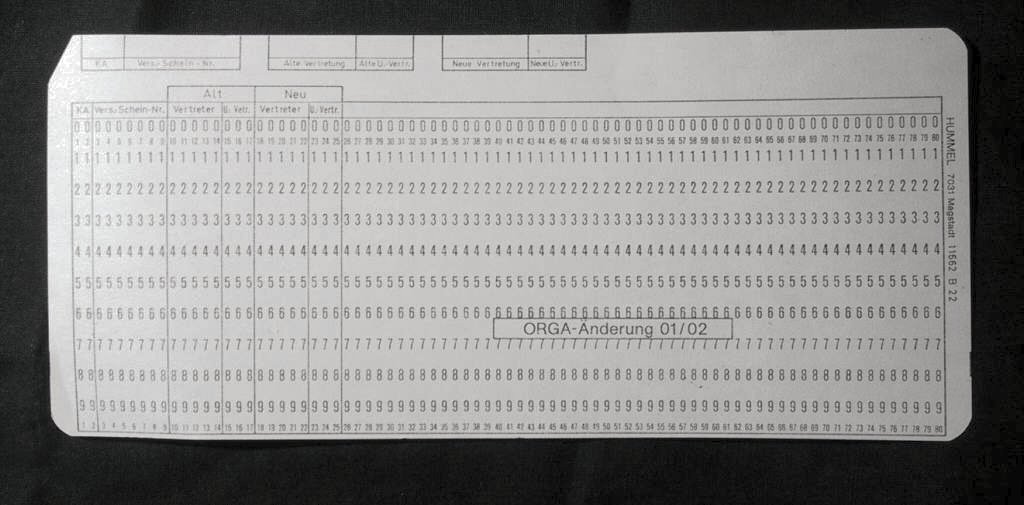 KA Vers.-Schein-Nr. Alte Vertretung Alte U.-Vertr. Neue Vertretung Neue U.-Vertr.
Alt Neu
KA Vers.-Schein-Nr. Vertreter U.-Vertr. Vertreter U.-Vertr.
0 0 0 0 0 0 0 0 0 0 0 0 0 0 0 0 0 0 0 0 0 0 0 0 0 0 0 0 0 0 0 0 0 0 0 0 0 0 0 0 0 0 0 0 0 0 0 0 0 0 0 0 0 0 0 0 0 0 0 0 0 0 0 0 0 0 0 0 0 0 0 0 0 0 0 0 0 0 0 0
1 2 3 4 5 6 7 8 9 10 11 12 13 14 15 16 17 18 19 20 21 22 23 24 25 26 27 28 29 30 31 32 33 34 35 36 37 38 39 40 41 42 43 44 45 46 47 48 49 50 51 52 53 54 55 56 57 58 59 60 61 62 63 64 65 66 67 68 69 70 71 72 73 74 75 76 77 78 79 80
1 1 1 1 1 1 1 1 1 1 1 1 1 1 1 1 1 1 1 1 1 1 1 1 1 1 1 1 1 1 1 1 1 1 1 1 1 1 1 1 1 1 1 1 1 1 1 1 1 1 1 1 1 1 1 1 1 1 1 1 1 1 1 1 1 1 1 1 1 1 1 1 1 1 1 1 1 1 1 1
2 2 2 2 2 2 2 2 2 2 2 2 2 2 2 2 2 2 2 2 2 2 2 2 2 2 2 2 2 2 2 2 2 2 2 2 2 2 2 2 2 2 2 2 2 2 2 2 2 2 2 2 2 2 2 2 2 2 2 2 2 2 2 2 2 2 2 2 2 2 2 2 2 2 2 2 2 2 2 2
3 3 3 3 3 3 3 3 3 3 3 3 3 3 3 3 3 3 3 3 3 3 3 3 3 3 3 3 3 3 3 3 3 3 3 3 3 3 3 3 3 3 3 3 3 3 3 3 3 3 3 3 3 3 3 3 3 3 3 3 3 3 3 3 3 3 3 3 3 3 3 3 3 3 3 3 3 3 3 3
4 4 4 4 4 4 4 4 4 4 4 4 4 4 4 4 4 4 4 4 4 4 4 4 4 4 4 4 4 4 4 4 4 4 4 4 4 4 4 4 4 4 4 4 4 4 4 4 4 4 4 4 4 4 4 4 4 4 4 4 4 4 4 4 4 4 4 4 4 4 4 4 4 4 4 4 4 4 4 4
5 5 5 5 5 5 5 5 5 5 5 5 5 5 5 5 5 5 5 5 5 5 5 5 5 5 5 5 5 5 5 5 5 5 5 5 5 5 5 5 5 5 5 5 5 5 5 5 5 5 5 5 5 5 5 5 5 5 5 5 5 5 5 5 5 5 5 5 5 5 5 5 5 5 5 5 5 5 5 5
6 6 6 6 6 6 6 6 6 6 6 6 6 6 6 6 6 6 6 6 6 6 6 6 6 6 6 6 6 6 6 6 6 6 6 6 6 6 6 6 6 6 6 6 6 6 6 6 6 6 6 6 6 6 6 6 6 6 6 6 6 6 6 6 6 6 6 6 6 6 6 6 6 6 6 6 6 6 6 6
ORGA-Änderung 01/02
7 7 7 7 7 7 7 7 7 7 7 7 7 7 7 7 7 7 7 7 7 7 7 7 7 7 7 7 7 7 7 7 7 7 7 7 7 7 7 7 7 7 7 7 7 7 7 7 7 7 7 7 7 7 7 7 7 7 7 7 7 7 7 7 7 7 7 7 7 7 7 7 7 7 7 7 7 7 7 7
8 8 8 8 8 8 8 8 8 8 8 8 8 8 8 8 8 8 8 8 8 8 8 8 8 8 8 8 8 8 8 8 8 8 8 8 8 8 8 8 8 8 8 8 8 8 8 8 8 8 8 8 8 8 8 8 8 8 8 8 8 8 8 8 8 8 8 8 8 8 8 8 8 8 8 8 8 8 8 8
9 9 9 9 9 9 9 9 9 9 9 9 9 9 9 9 9 9 9 9 9 9 9 9 9 9 9 9 9 9 9 9 9 9 9 9 9 9 9 9 9 9 9 9 9 9 9 9 9 9 9 9 9 9 9 9 9 9 9 9 9 9 9 9 9 9 9 9 9 9 9 9 9 9 9 9 9 9 9 9
1 2 3 4 5 6 7 8 9 10 11 12 13 14 15 16 17 18 19 20 21 22 23 24 25 26 27 28 29 30 31 32 33 34 35 36 37 38 39 40 41 42 43 44 45 46 47 48 49 50 51 52 53 54 55 56 57 58 59 60 61 62 63 64 65 66 67 68 69 70 71 72 73 74 75 76 77 78 79 80
HUMMEL 7031 Magstadt 11562 B 22